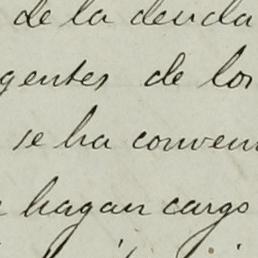 de la deuda
gentes de los
se ha conven
hagan cargo